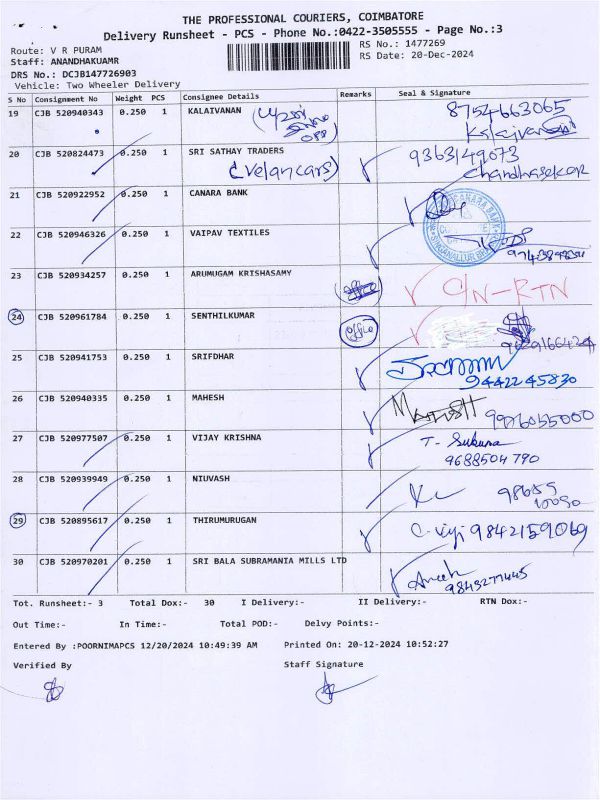 THE PROFESSIONAL COURIERS, COIMBATORE
Delivery Runsheet - PCS - Phone No.:0422-3505555 - Page No.:3
Route: V R PURAM
RS No.: 1477269
Staff: ANANDHAKUAMR
RS Date: 20-Dec-2024
DRS No.: DCJB147726903
Vehicle: Two Wheeler Delivery
S No Consignment No Weight PCS Consignee Details Remarks Seal & Signature
19 CJB 520940343 0.250 1 KALAIVANAN 8754663065
20 CJB 520824473 0.250 1 SRI SATHAY TRADERS 9363149073
(Velancars) Chandhasekar
21 CJB 520922952 0.250 1 CANARA BANK
22 CJB 520946326 0.250 1 VAIPAV TEXTILES
23 CJB 520934257 0.250 1 ARUMUGAM KRISHASAMY C/N-RTN
24 CJB 520961784 0.250 1 SENTHILKUMAR office
25 CJB 520941753 0.250 1 SRIFDHAR
9442245830
26 CJB 520940335 0.250 1 MAHESH
27 CJB 520977507 0.250 1 VIJAY KRISHNA T- Sukuna
9688504790
28 CJB 520939949 0.250 1 NIUVASH
29 CJB 520895617 0.250 1 THIRUMURUGAN C-Viji 9842159069
30 CJB 520970201 0.250 1 SRI BALA SUBRAMANIA MILLS LTD
9843277445
Tot. Runsheet:- 3 Total Dox:- 30 I Delivery:- II Delivery:- RTN Dox:-
Out Time:- In Time:- Total POD:- Delvy Points:-
Entered By :POORNIMAPCS 12/20/2024 10:49:39 AM Printed On: 20-12-2024 10:52:27
Verified By Staff Signature